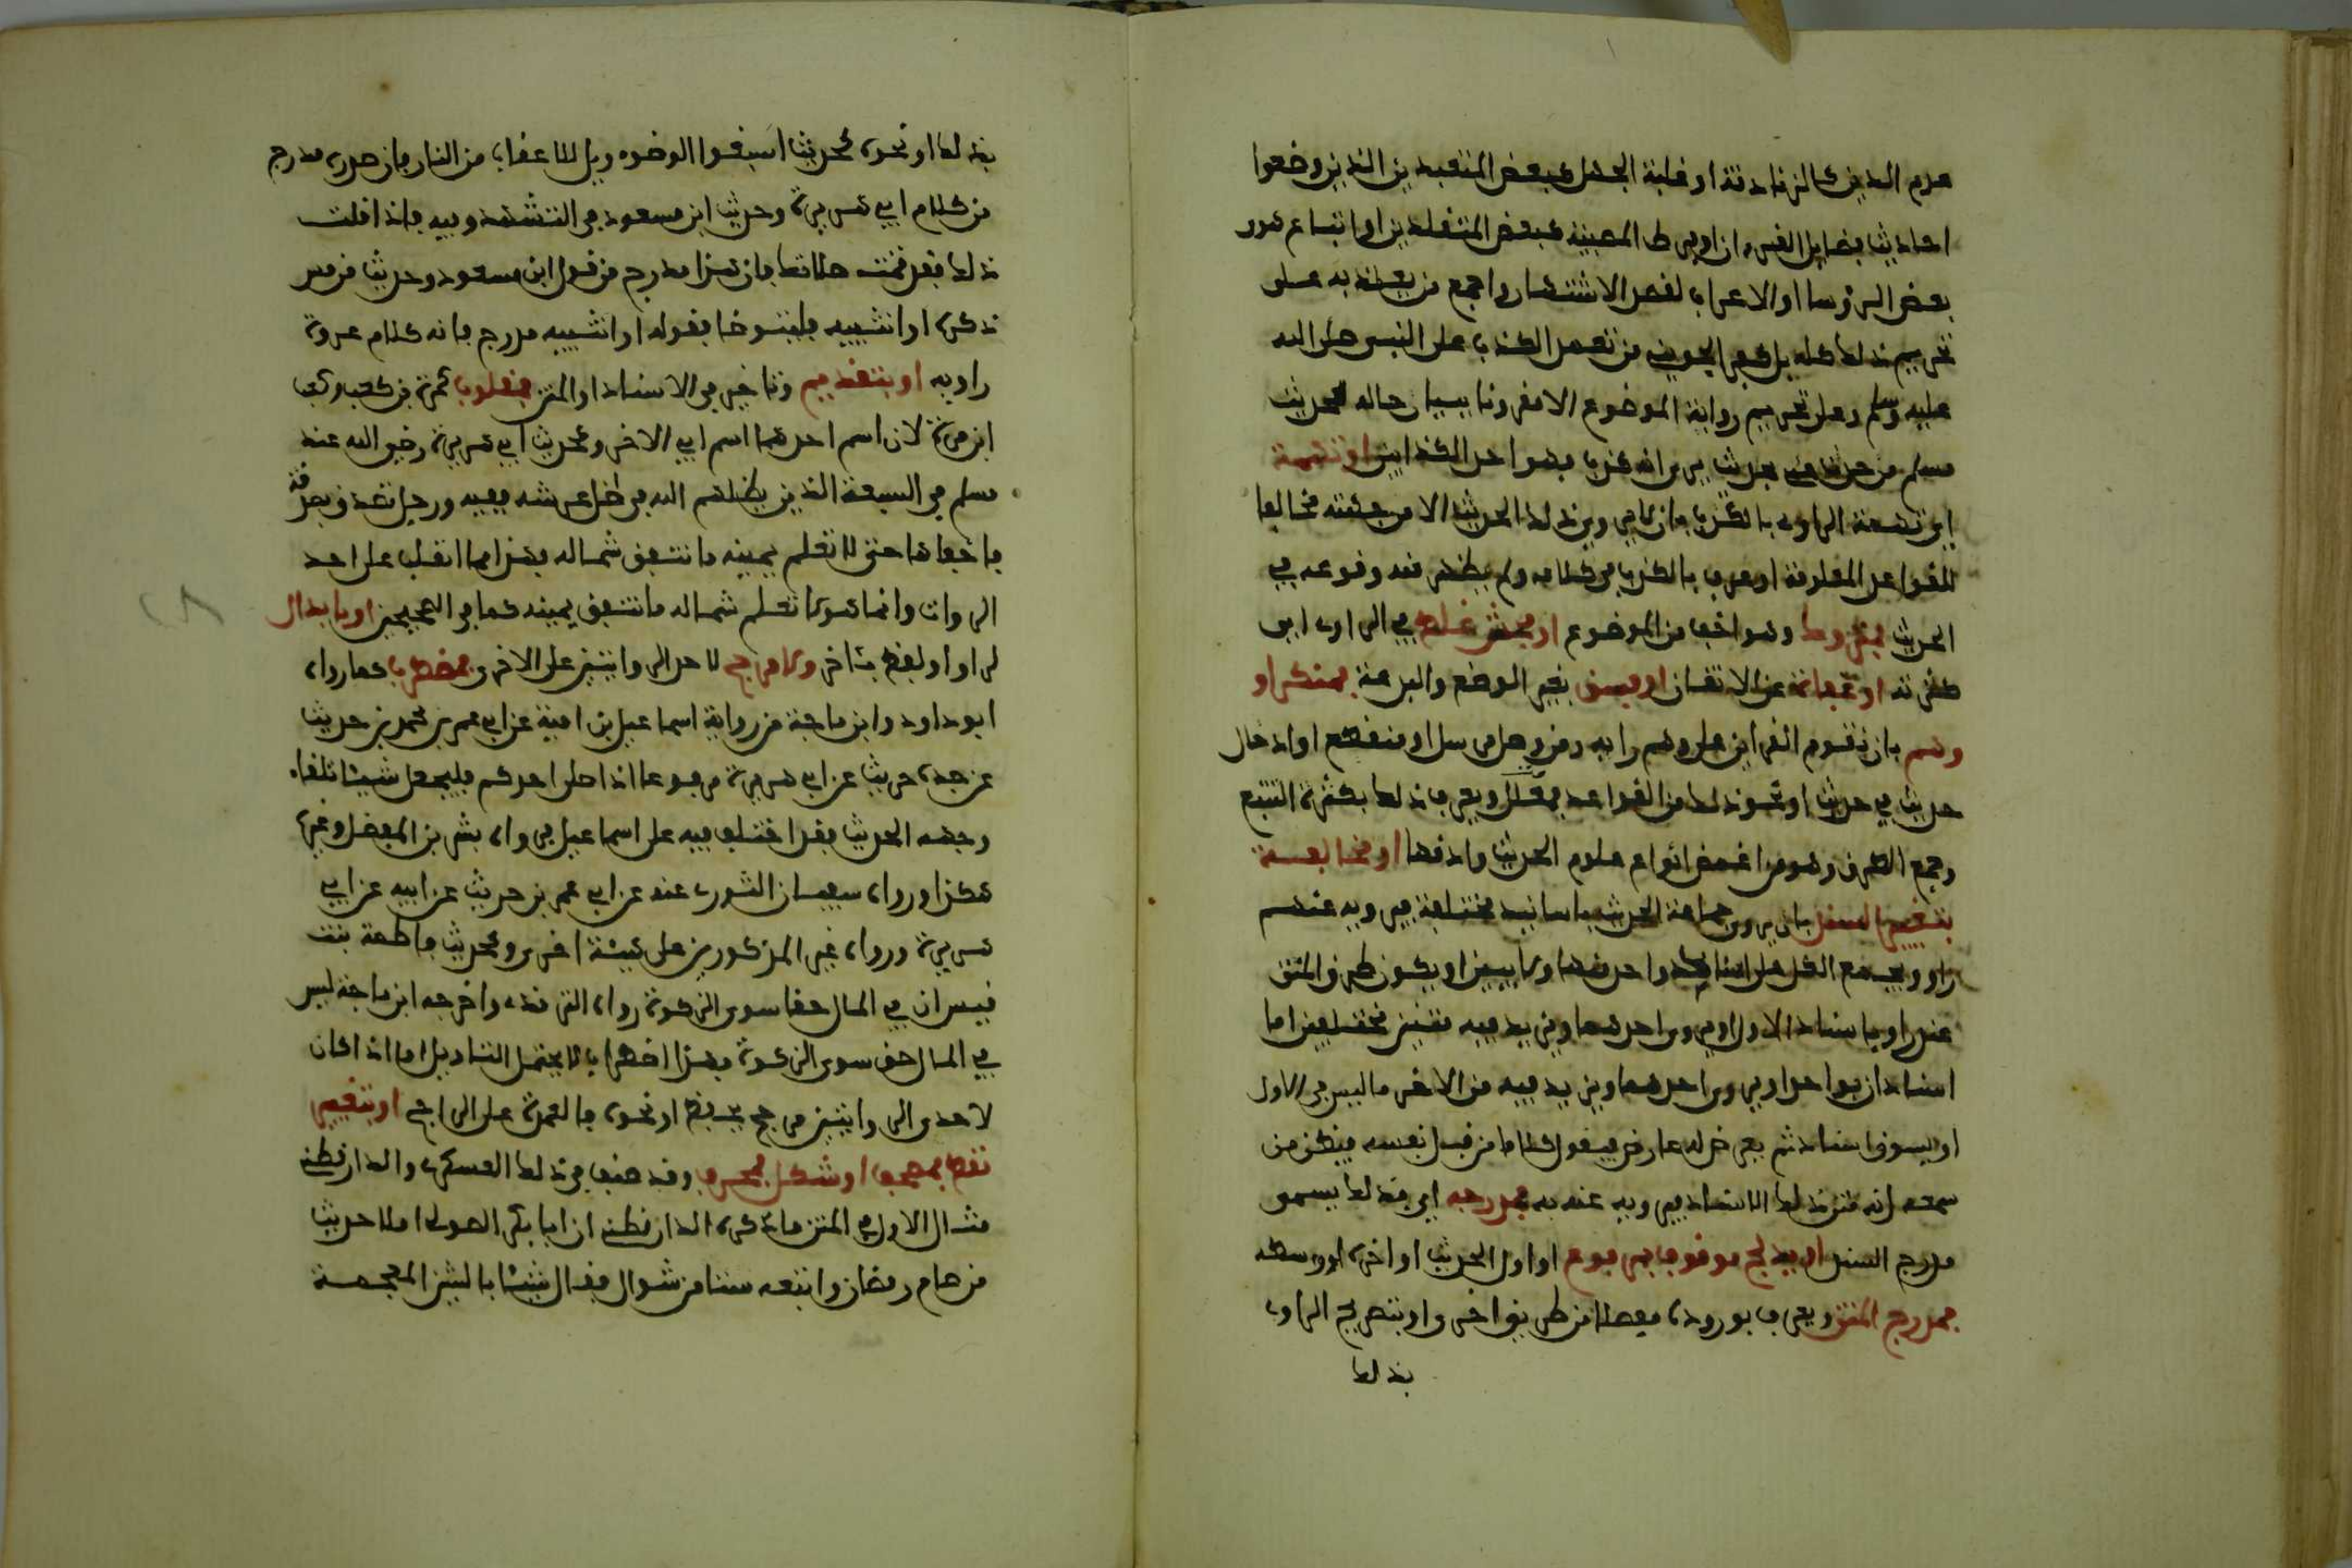 عدم الدين كالزنادقة او غلبة الجهل كبعض المتعبدين الذين وضعوا
احاديث فضايل القرءان او فرط العصبية كبعض المقلدين او اتباع هوى
بعض الرؤسا او الاغراب لقصد الاشتهار واجمع من يعتد به على
تحريم ذلك كله بل كفر الجوينى من تعمد الكذب على النبى صلى الله
عليه وسلم وعلى تحريم رواية الموضوع الا مقرونا ببيان حاله لحديث
مسلم من حدث عنى بحديث يرى انه كذب فهو احد الكذابين او تهمة
اى تهمة الراوى بالكذب بان لا يروى ذلك الحديث الا من جهته مخالفا
للقواعد المعلومة او عرف بالكذب فى كلامه ولم يظهر منه وقوعه فى
الحديث فمتروك وهو اخف من الموضوع او فحش غلط فى الراوى اى
كثرته او غفلته عن الاتقان او فسق بغير الوضع والبدعة فمنكر او
وهم بان تقوم القراين على وهم راويه من وصل مرسل او منقطع او ادخال
حديث فى حديث او نحو ذلك من القوادح فمعلل ويعرف ذلك بكثرة التتبع
وجمع الطرق وهو من اغمض انواع علوم الحديث وادقها او مخالفة
بتغيير السند بان يروى جماعة الحديث باسانيد مختلفة فيرويه عنهم
راو ويجمع الكل على اسناد واحد منها ولا يبين او يكون طرف المتن
عند راو باسناد الاول او يروى احدهما ويزيد فيه متنين مختلفين لهما
اسنادان بواحد او يروى احدهما ويزيد فيه من الاخر ما ليس فى الاول
او يسوق اسنادا ثم يعرض له عارض فيقول كلاما من قبل نفسه فيظن من
سمعه انه متن ذلك الاسناد فيرويه عنه به فمدرجه اى فذلك يسمى
مدرج السند او بدمج موقوف بمرفوع او اول الحديث او اخره او وسطه
فمدرج المتن ويعرف بوروده مفصلا من طريق اخرى او بتصريح الراوى
بذلك
بذلك او نحوه كحديث اسبغوا الوضوء ويل للاعقاب من النار فان صدره مدرج
من كلام ابى هريرة وحديث ابن مسعود فى التشهد وفيه فاذا قلت
ذلك فقد تمت صلاتك فان هذا مدرج من قول ابن مسعود وحديث من مس
ذكره او انثييه فليتوضا فقوله او انثييه مدرج فانه كلام عروة
راويه او بتقديم وتاخير فى الاسناد او المتن فمقلوب كمرة بن كعب وكعب
ابن مرة لان اسم احدهما اسم ابى الاخر وكحديث ابى هريرة رضى الله عنه
مسلم فى السبعة الذين يظلهم الله فى ظل عرشه ففيه ورجل تصدق بصدقة
فاخفاها حتى لا تعلم يمينه ما تنفق شماله فهذا مما انقلب على احد
الرواة وانما هو لا تعلم شماله ما تنفق يمينه كما فى الصحيحين او بابدال
لراو او لفظ باخر ولا مرجح لاحد الروايتين على الاخرى فمضطرب كما رواه
ابو داود وابن ماجة من رواية اسماعيل بن امية عن ابى عمر بن محمد بن حريث
عن جده حريث عن ابى هريرة مرفوعا اذا صلى احدكم فليجعل شيئا تلقاء
وجهه الحديث فقد اختلف فيه على اسماعيل فرواه بشر بن المفضل وغيره
هكذا ورواه سفيان الثورى عنه عن ابى عمر بن حريث عن ابيه عن ابى
هريرة ورواه غير المذكورين على هيئة اخرى وكحديث فاطمة بنت
قيس ان فى المال حقا سوى الزكوة رواه الترمذى واخرجه ابن ماجة ليس
فى المال حق سوى الزكوة فهذا اضطراب لا يحتمل التاويل اما اذا كان
لاحدى الروايتين مرجح بحفظ او نحوه فالعمدة على الراجح او بتغيير
نقط فمصحف او شكل فمحرف وقد صنف فى ذلك العسكرى والدارقطنى
مثال الاول فى المتن ما ذكره الدارقطنى ان ابا بكر الصولى املا حديث
من صام رمضان واتبعه ستا من شوال فقال شيئا بالشين المعجمة